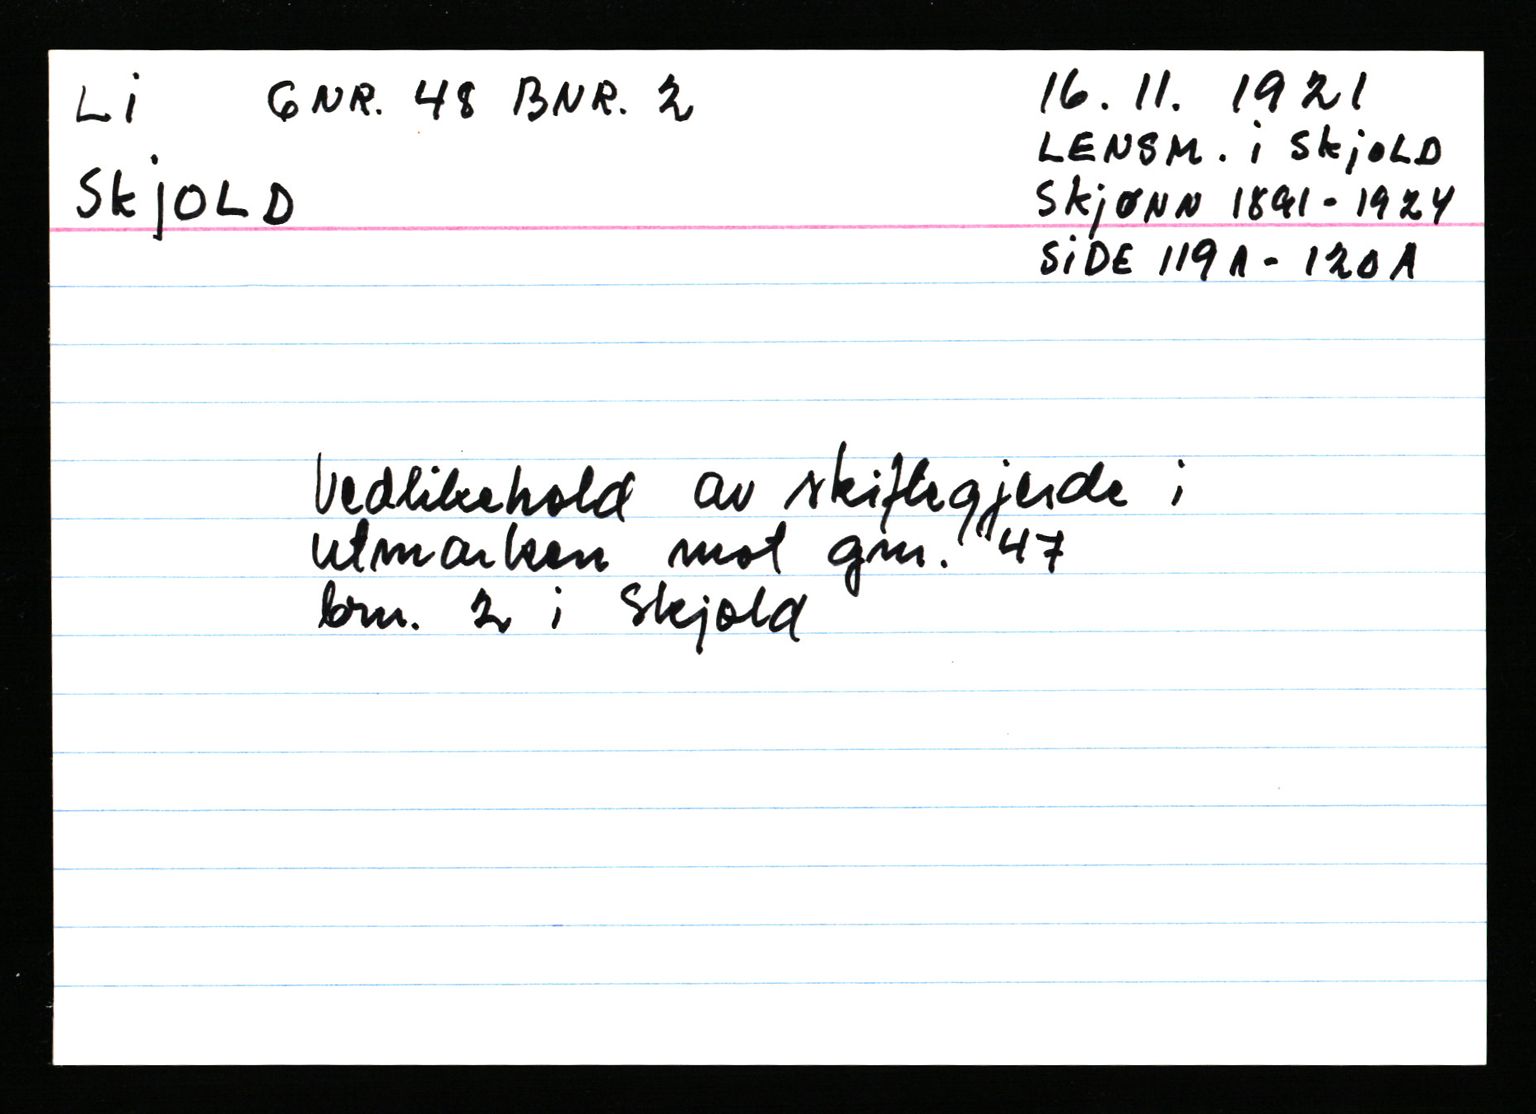 Li GNR. 48 BNR. 2
SkjOLD
16. 11. 1921
LENSM. i SkjOLD
SkjØNN 1891 - 1924
SiDE 119A - 120A
Vedlikehold av skiftegjerde i
utmarken mot gnr. 47
bnr. 2 i Skjold